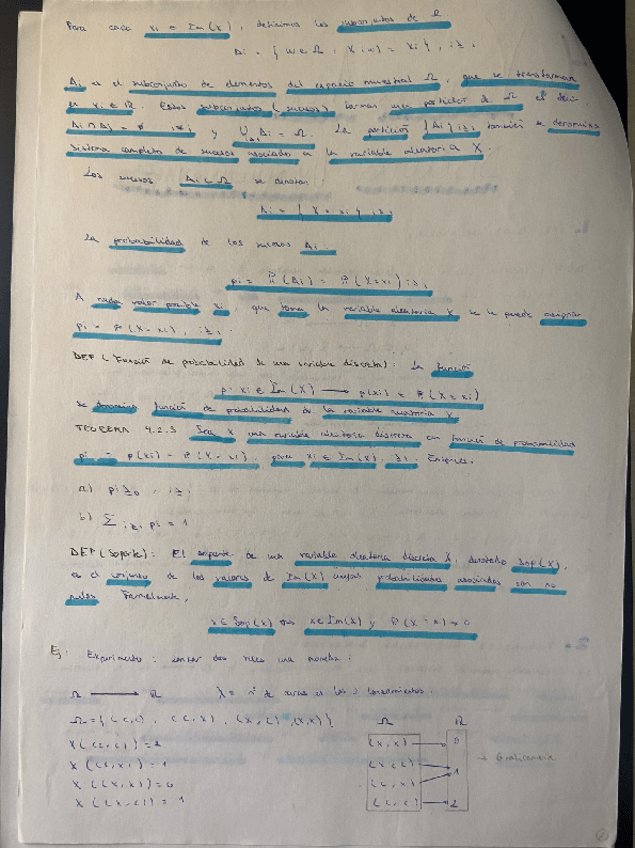 Para cada xi ∈ Im(X), definimos los subconjuntos de Ω
Ai = { w ∈ Ω : X(w) = xi }, i≥1
Ai es el subconjunto de elementos del espacio muestral Ω, que se transforman
en xi ∈ R. Estos subconjuntos (sucesos) forman una partición de Ω es decir
Ai ∩ Aj = ∅ i≠j y ∪i≥1 Ai = Ω. La partición {Ai} i≥1 también se denomina
sistema completo de sucesos asociados a la variable aleatoria X.
Los sucesos Ai ⊂ Ω se denotan
Ai = { X = xi } i≥1
La probabilidad de los sucesos Ai
pi = P(Ai) = P(X=xi) i≥1
A cada valor posible xi, que toma la variable aleatoria X se le puede asignar
pi = P(X=xi), i≥1.
DEF (Función de probabilidad de una variable discreta): La función
p: xi ∈ Im(X) ⟶ p(xi) = P(X=xi)
se denomina función de probabilidad de la variable aleatoria X
TEOREMA 4.2.3 Sea X una variable aleatoria discreta con función de probabilidad
pi = p(xi) = P(X=xi), para xi ∈ Im(X), i≥1. Entonces,
a) pi ≥ 0, i≥1
b) ∑ i≥1 pi = 1
DEF (Soporte): El soporte de una variable aleatoria discreta X, denotado Sop(X),
es el conjunto de los valores de Im(X) cuyas probabilidades asociadas son no
nulas. Formalmente,
x ∈ Sop(X) x ∈ Im(X) y P(X=x) > 0
Ej: Experimento: lanzar dos veces una moneda:
Ω ⟶ R X = nº de caras en los 2 lanzamientos.
Ω = { (C,C), (C,X), (X,C), (X,X) }
X((C,C)) = 2
X((C,X)) = 1
X((X,X)) = 0
X((X,C)) = 1
Ω R
(X,X) → 0
(X,C) → 1
(C,X)
(C,C) → 2
→ Gráficamente